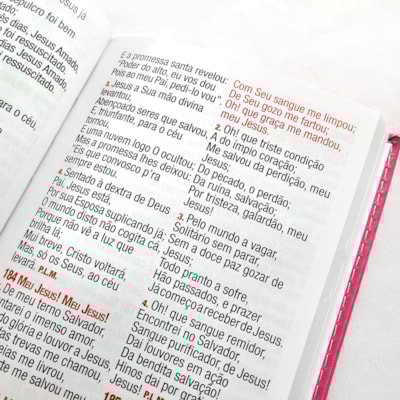 Jesus já
foi bem
dias, Jesus Amado,
foi ressuscitado.
dias, Jesus Amado,
ressuscitado.
o céu,
E a promessa santa revelou:
"Poder do alto, eu vos dou
Pois ao meu Pai, pedi-lo vou".
3. Jesus a Sua mão divina
levantou,
Abençoado seres que salvou,
E triunfante, para o céu
tornou.
E uma nuvem logo O ocultou;
Mas a promessa lhes deixou:
"Eis que convosco p'ra
sempre estou.
4. Sentado à dextra de Deus
Pai, Jesus está,
Por sua Esposa suplicando já;
O mundo disto não cogita cá,
Porque não vê a luz que
brilha lá;
Mui breve, Cristo voltará,
Mas, só os Seus, ao céu
levará. P.L.M.
184 MEU JESUS! MEU JESUS!
De meu terno Salvador,
o imenso amor,
glória e louvor a Jesus,
trevas me chamou,
me livrou,
me salvou meu
Com Seu sangue me limpou;
De Seu gozo me fartou;
Oh! que graça me mandou,
meu Jesus.
2. Oh! que triste condição
A do ímpio coração;
Me salvou da perdição, meu
Jesus;
Do pecado, o perdão;
Da ruína, salvação;
Por tristeza, galardão, meu
Jesus!
3. Pelo mundo a vagar,
Solitário sem parar,
Sem a doce paz gozar de
Jesus;
Todo pranto a sofre,
Hão passados, e prazer
Já começo a receber de Jesus.
4. Oh! que sangue remidor,
Encontrei no Salvador,
Sangue purificador, de Jesus!
Dai louvores em ação
Da bendita salvação!
Hinos dai por gratidão
Jesus! P.L.M.
185